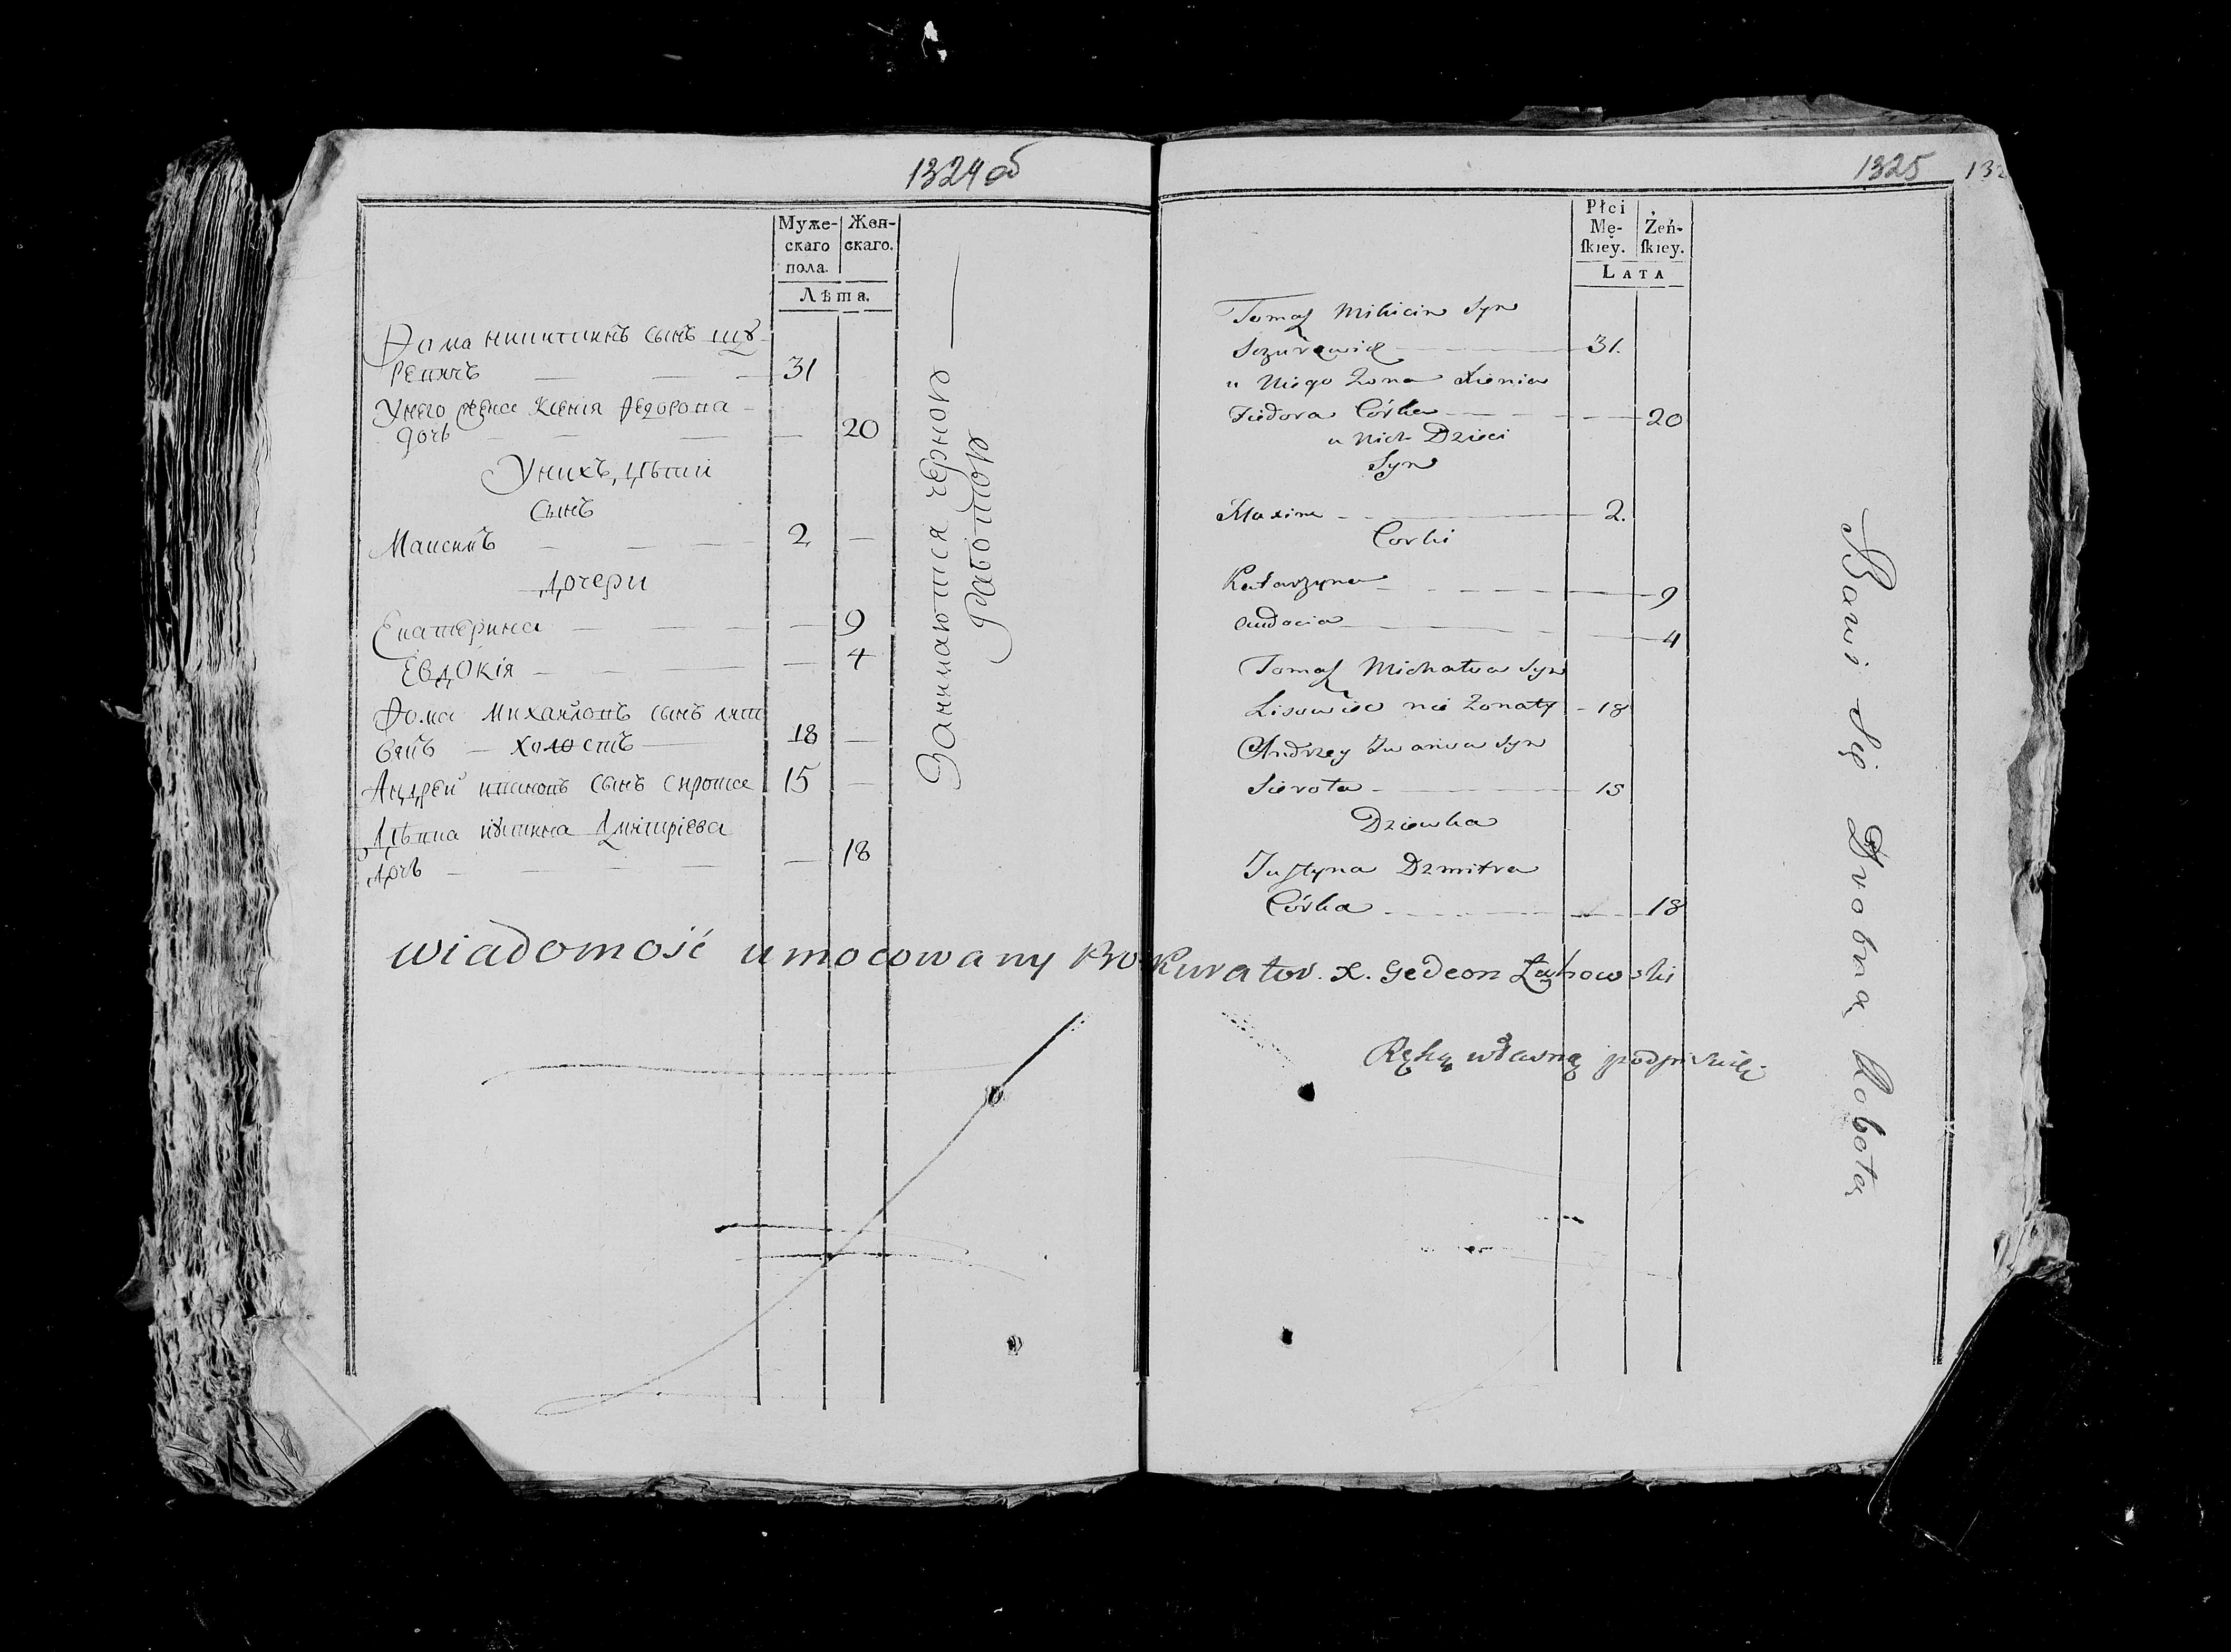 1324 об
Муже-
скаго
пола.
Жен-
скаго.
Лѣта.
Фома никитинъ сынъ щу
репичъ 31
Унего жена Ксенія Федорова
дочь 20
Унихъ дѣти
сынъ
Максимъ 2
дочери
Екатерина 9
Евдокія 4
Фома Михайловъ сынъ
холостъ 18
Андрей ивановъ сынъ сирота 15
Дѣвка Дмитріева
дочь 18
Занимаются черною
работою
1325
132
Płci
Mę-
skiey.
Żeń-
skiey.
LATA
Tomasz Mikicin Syn
31.
u Niego Zona Xienia
Fiedora Córka 20
u Nich Dzieci
Syn
Maxim 2.
Corki
Katarzyna 9
Audocia 4
Tomasz Michałow Syn
Lisowiec nie Zonaty 18
Andrzey Iwanow Syn
Sierota 15
Dziewka
Justyna Dzmitra
Córka 18
Bawi Się Drobną Robotą
wiadomość umocowany Prokurator. X. Gedeon
Ręką własną